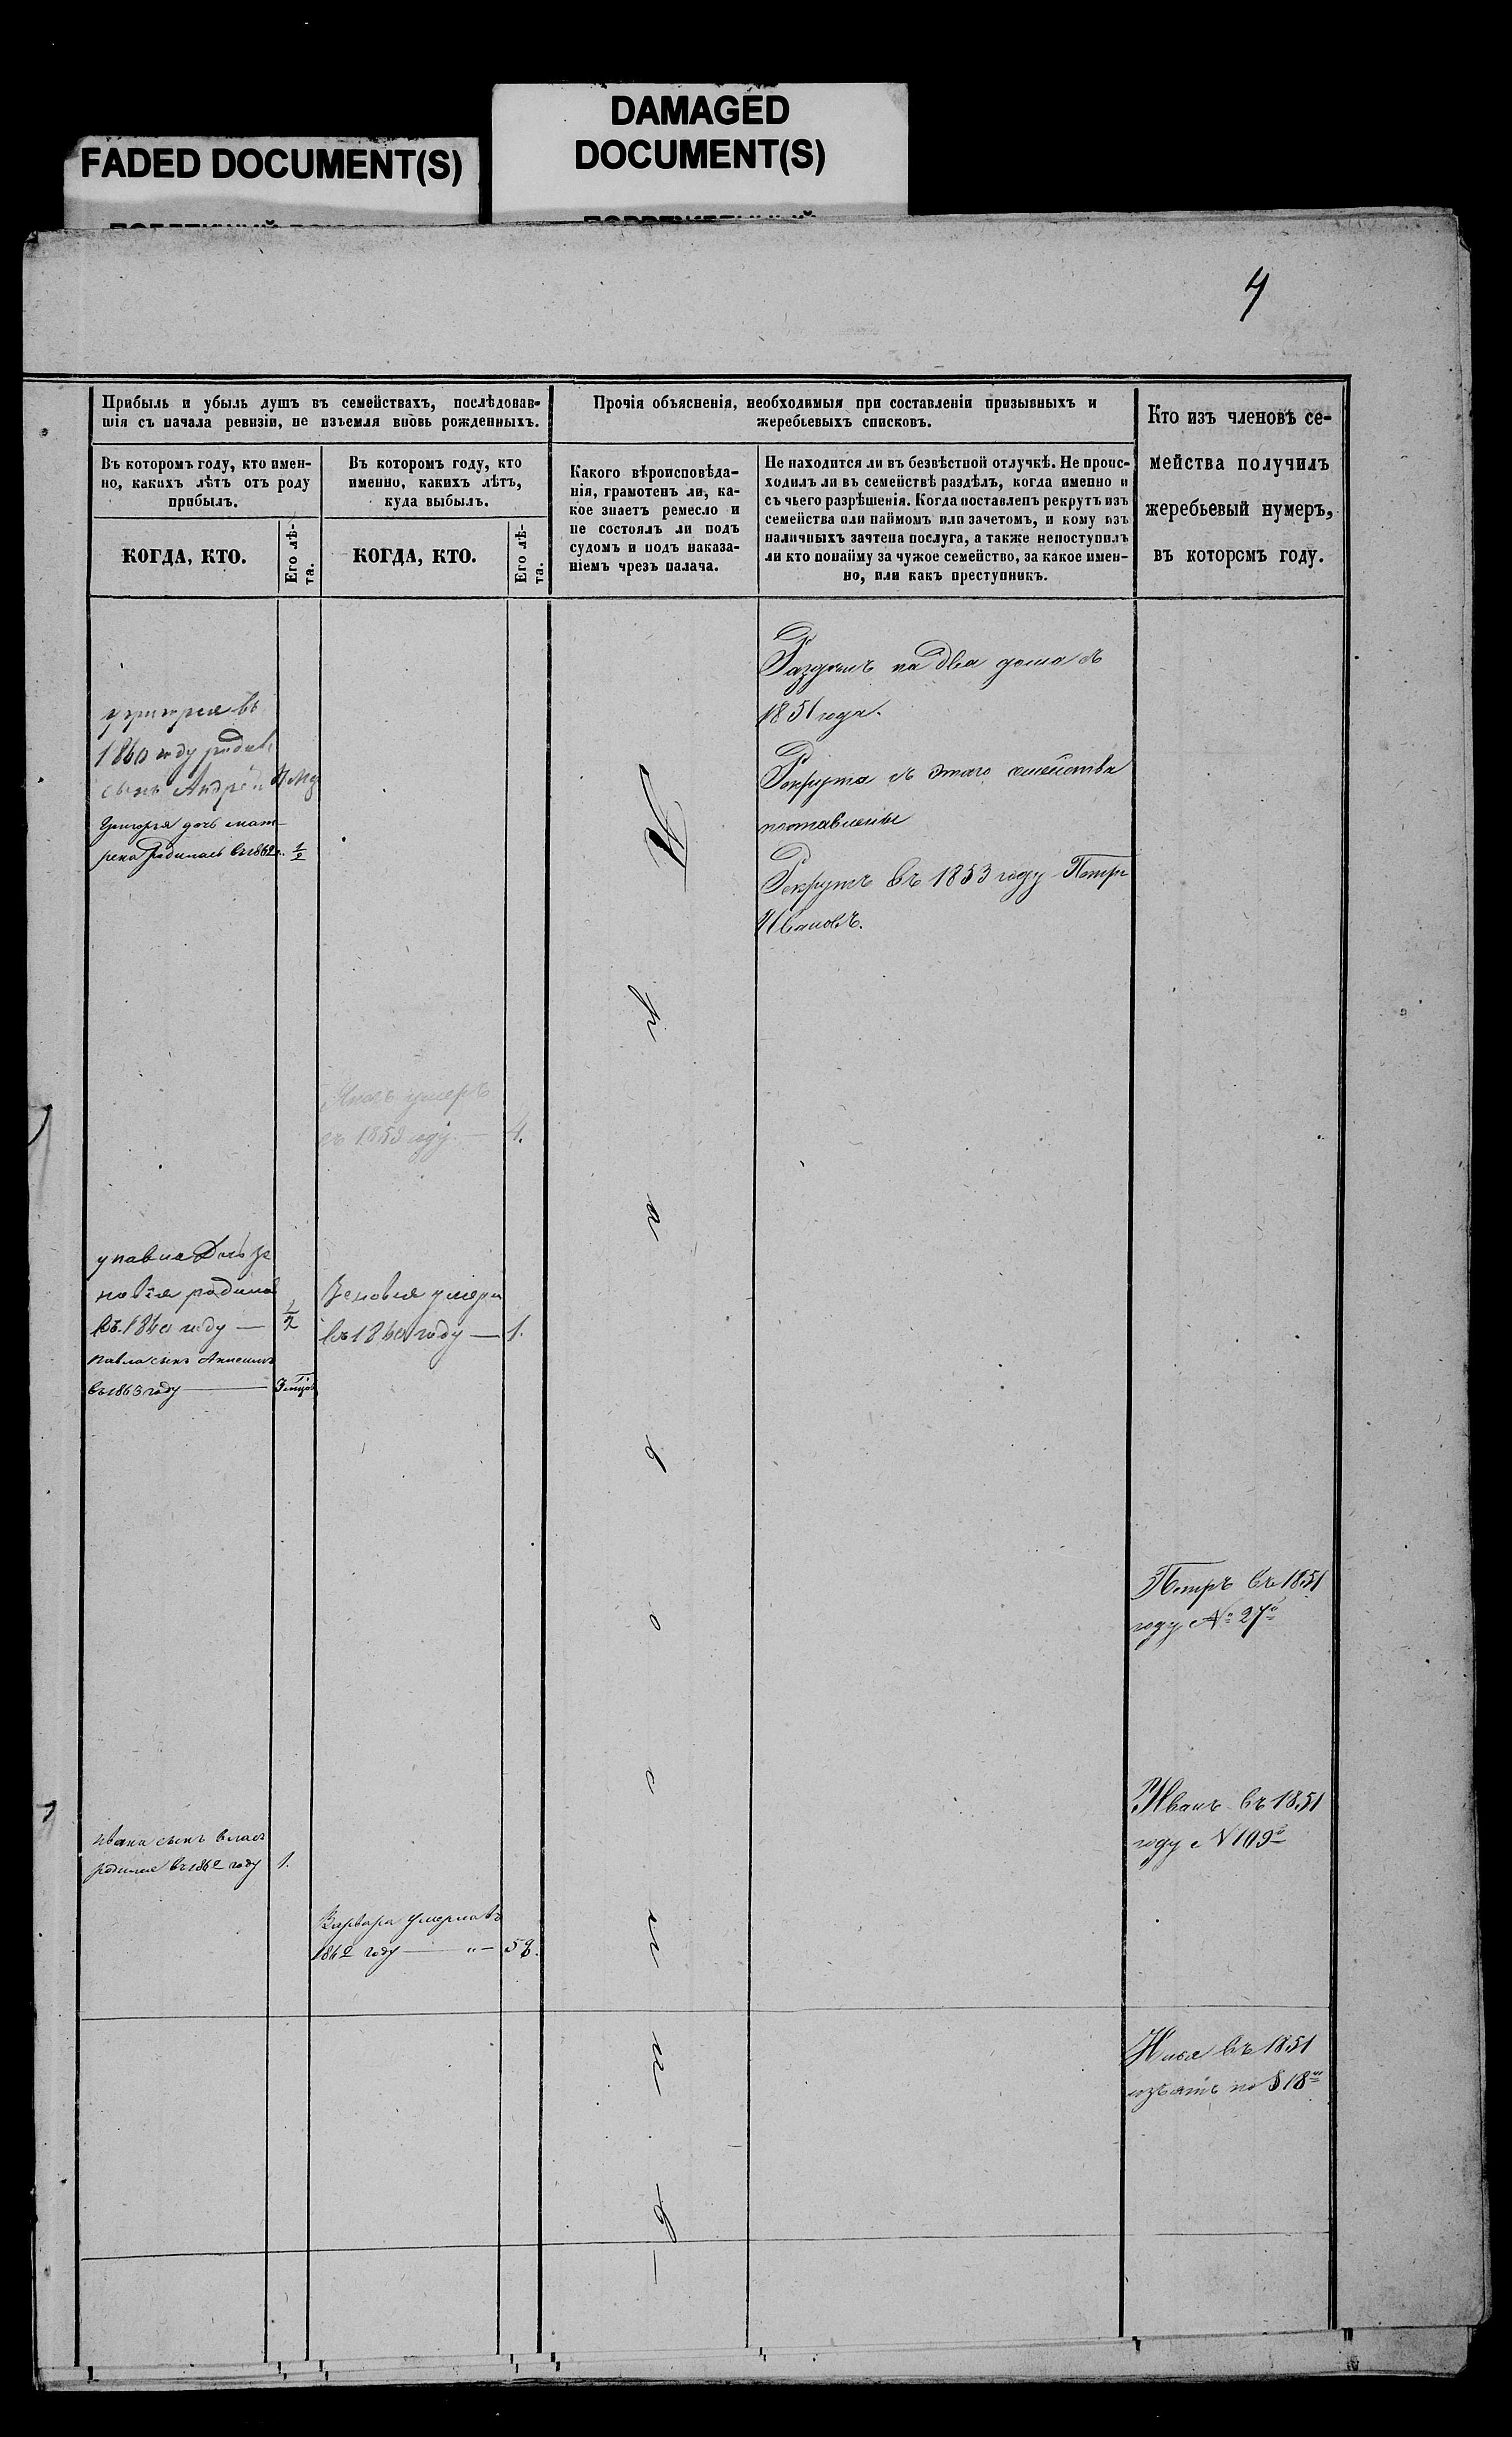 DAMAGED
DOCUMENT(S)
FADED DOCUMENT(S)
4
Прибыль и убыль душъ въ семействахъ, послѣдовав-
шія съ начала ревизіи, не изъемля вновь рожденныхъ.
Въ которомъ году, кто имен-
но, какихъ лѣтъ отъ роду
прибылъ.
КОГДА, КТО.
Его лѣ-
та.
Въ которомъ году, кто
именно, какихъ лѣтъ,
куда выбылъ.
КОГДА, КТО.
Его лѣ-
та.
Прочія объясненія, необходимыя при составленіи призывныхъ и
жеребьевыхъ списковъ.
Какого вѣроисповѣда-
нія, грамотенъ ли, ка-
кое знаетъ ремесло и
не состоялъ ли подъ
судомъ и подъ наказа-
ніемъ чрезъ палача.
Не находится ли въ безвѣстной отлучкѣ. Не проис-
ходилъ ли въ семействѣ раздѣлъ, когда именно и
съ чьего разрѣшенія. Когда поставленъ рекрутъ изъ
семейства или наймомъ или зачетомъ, и кому изъ
наличныхъ зачтена послуга, а также непоступилъ
ли кто понайму за чужое семейство, за какое имен-
но, или какъ преступникъ.
Кто изъ членовъ се-
мейства получилъ
жеребьевый нумеръ,
въ которомъ году.
Раздѣлъ на два дома съ
1851 года.
Рекрута съ этаго семейства
поставлены
Рекрутъ въ 1853 году Петръ
Ивановъ.
Григорья въ
1860 году родил
сынъ Андрей
Григорья дочь мат-
рена родилась въ 1862 г. 1/2
умеръ
въ 1853 году — 4.
у павла дочь зе
новія родилас
въ 1860 году — 1/2
Зеновія умерла
въ 1860 году — 1.
павла сынъ
въ 1863 году —
Петръ въ 1851
году № 27й
Иванъ въ 1851
году № 109й
ивана сынъ власъ
родился въ 1862 году 1.
Варвара умерла въ
1862 году — " — 58.
въ 1851
изъятъ по § 18му
П
р
а
в
о
с
л
а
в